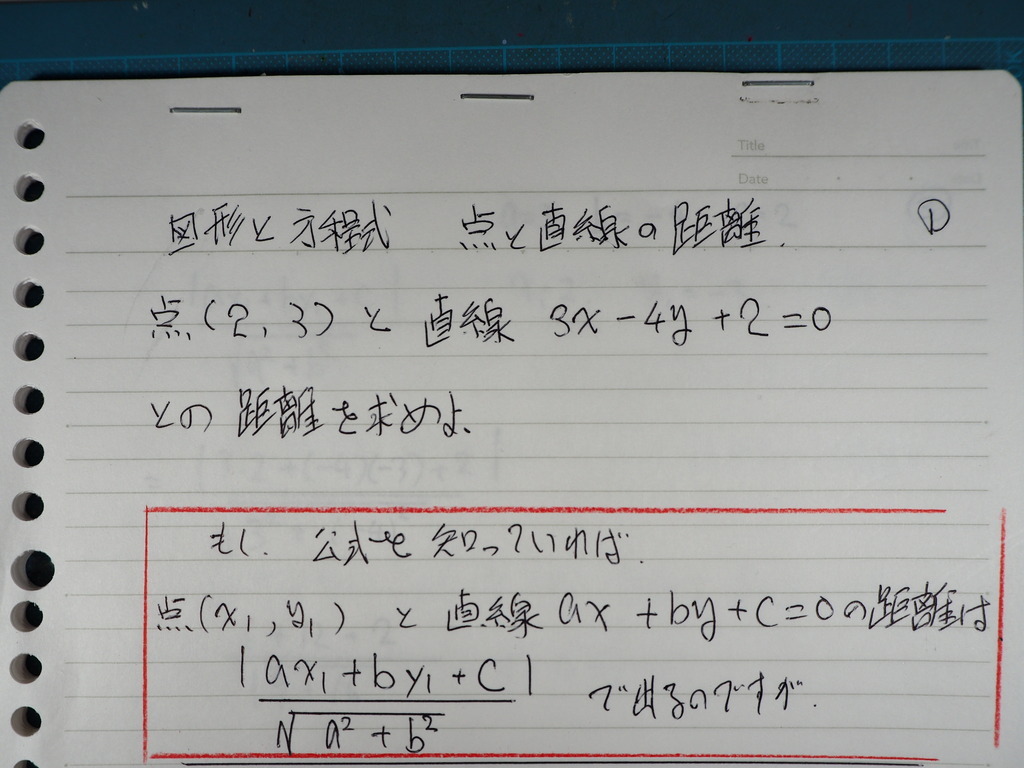 Title
Date
図形と方程式 点と直線の距離. ①
点(2, 3) と 直線 3x-4y+2=0
との 距離を求めよ、
もし. 公式を 知っていれば.
点(x₁, y₁) と 直線 ax+by+c=0の距離は
|ax₁+by₁+c|
√a²+b²
で出るのですが.